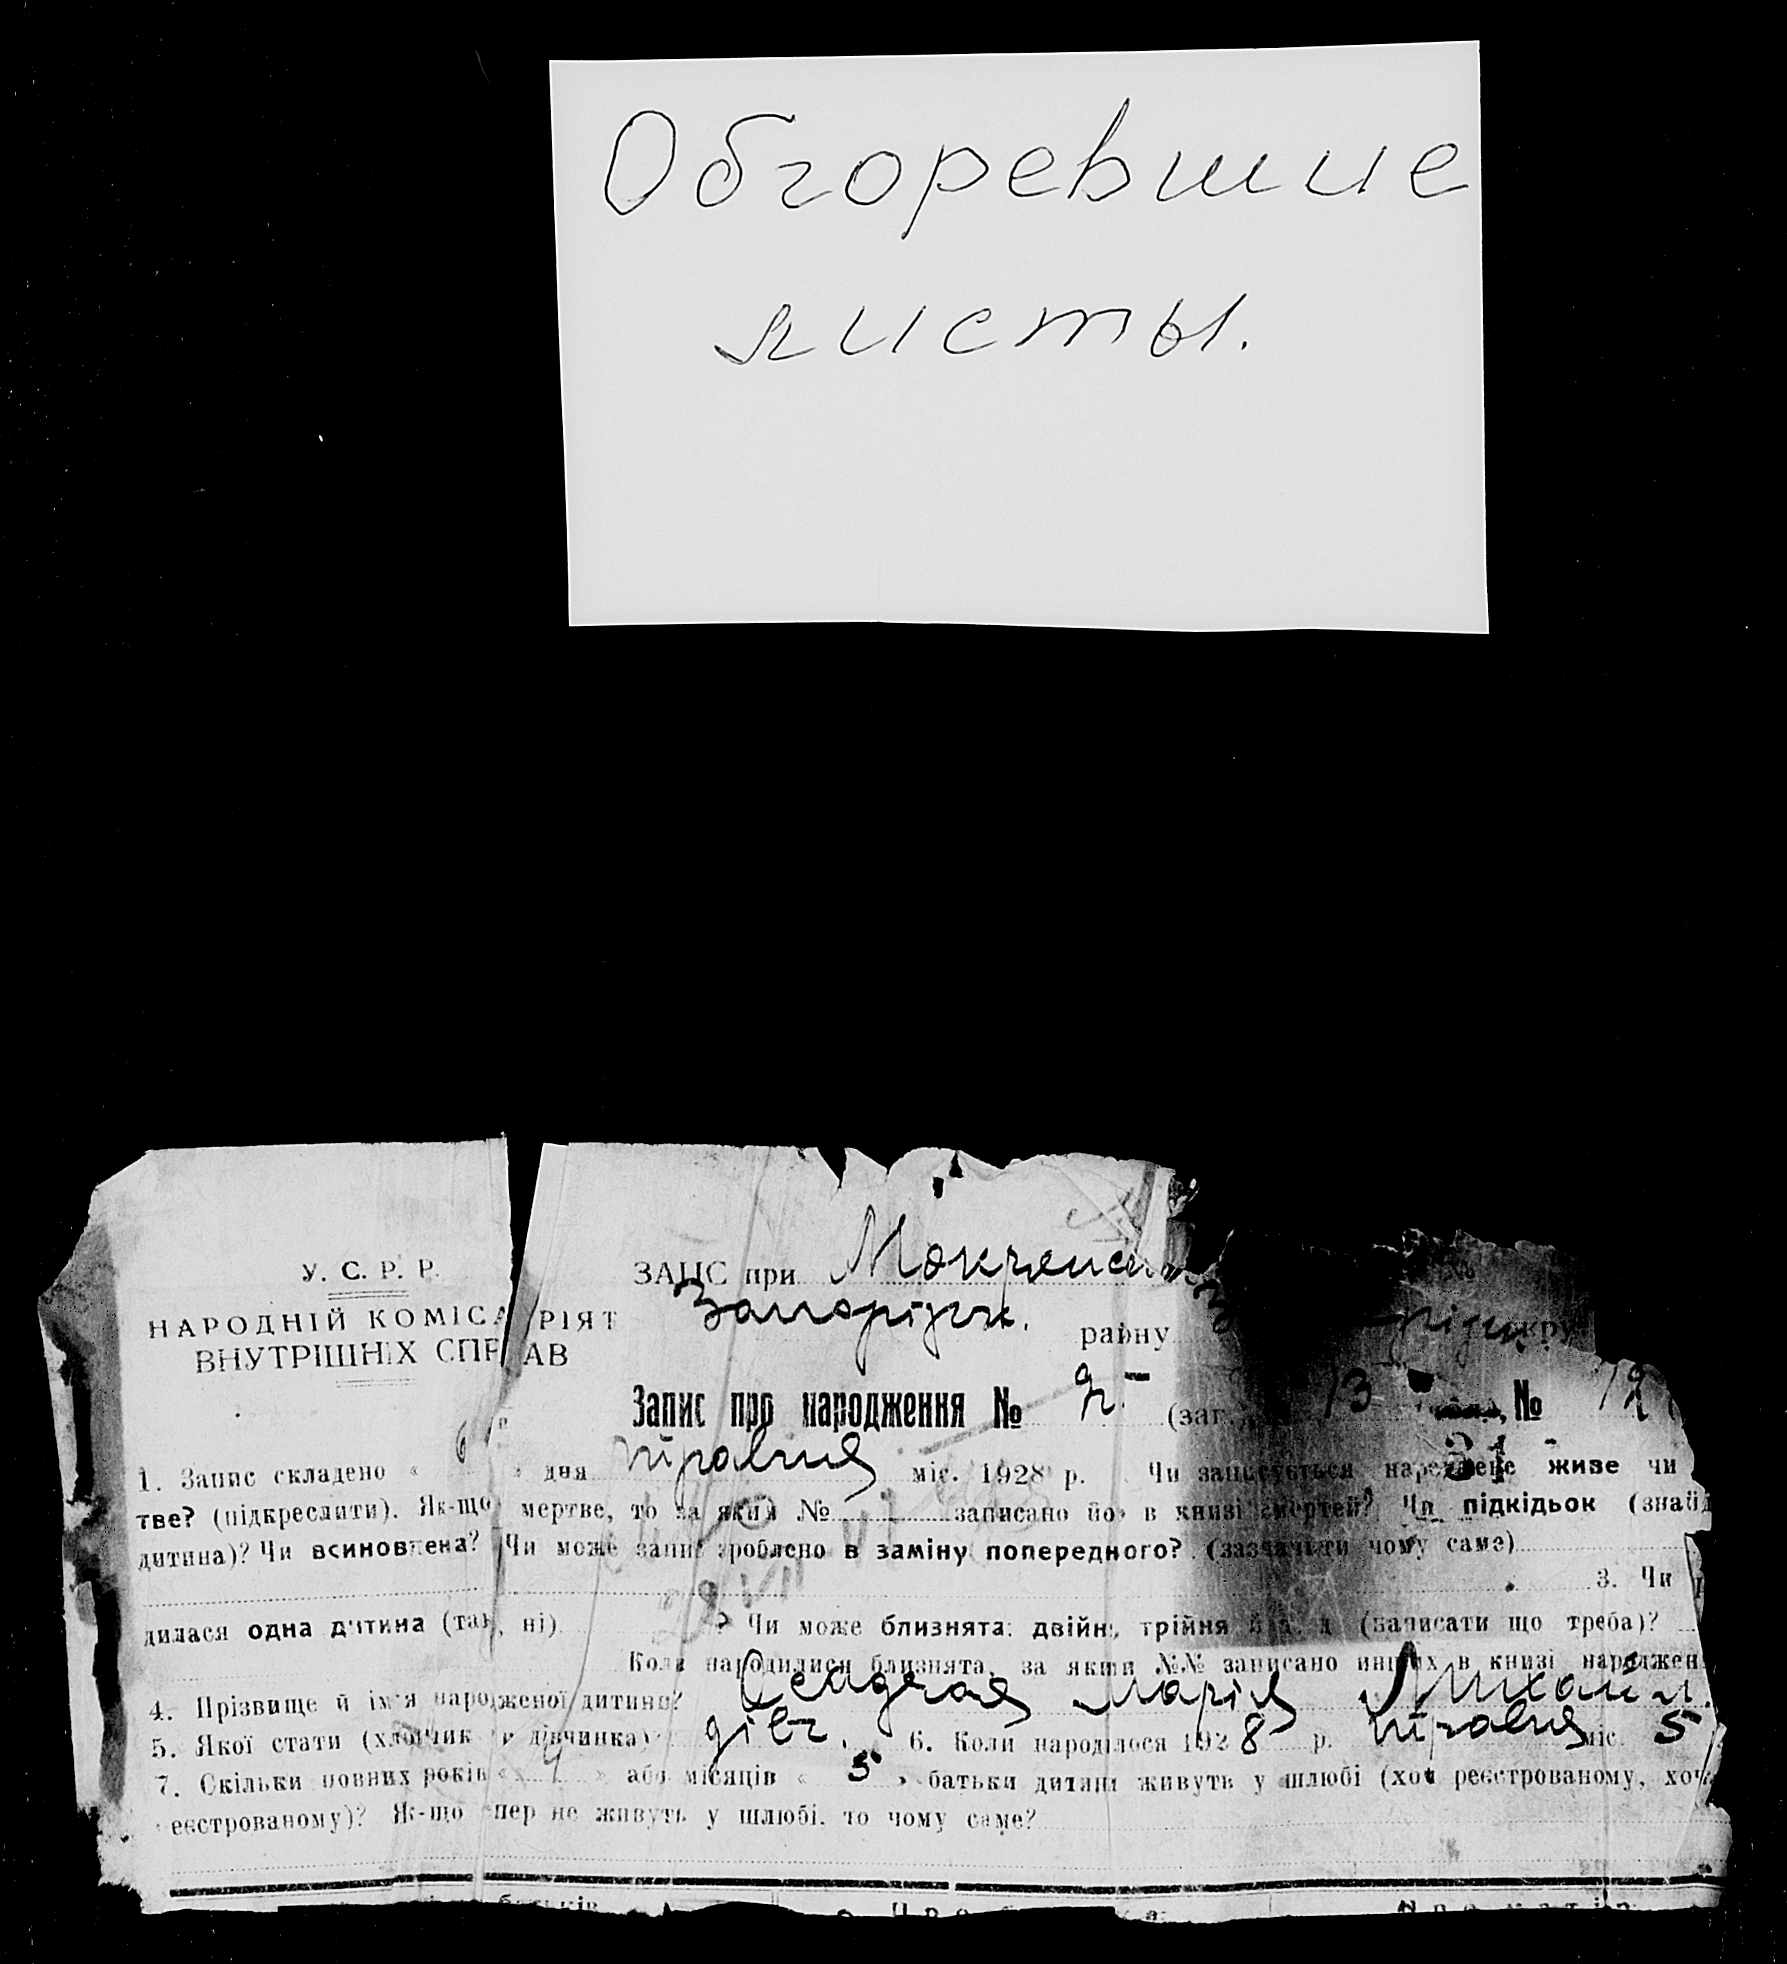 Обгоревшие
листы.
У. С. Р. Р.
НАРОДНІЙ КОМІСАРІЯТ
ВНУТРІШНІХ СПРАВ
ЗАГС при
Запоріжж.
району
Запис про народження № (заг. 13 №
1. Запис складено « 6 » дня травня міс. 1928 р. Чи записується народжене живе чи
тве? (підкреслити). Як-що мертве, то за яким № записано його в книзі смертей? Чи підкідьок (знайд
дитина)? Чи всиновлена? Чи може запис зроблено в заміну попередного? (зазначити чому саме)
3. Чи
дилася одна дитина (так, ні) ? Чи може близнята: двійня, трійня й т. д. (написати що треба)?
Коли народилися близнята, за якими №№ записано инших в книзі народжен
4. Прізвище й ім'я народженої дитини? Марія Михайл.
5. Якої стати (хлопчик чи дівчинка)? дівч. 6. Коли народілося 1928 р. травня міс. 5
7. Скільки повних років « » або місяців « 5 » батьки дитини живуть у шлюбі (хоч реєстрованому, хоч
еєстрованому)? Як-що тепер не живуть у шлюбі, то чому саме?
батьків